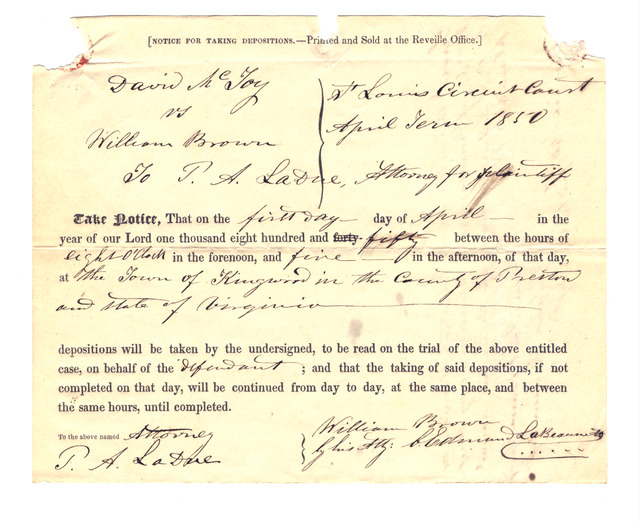 [NOTICE FOR TAKING DEPOSITIONS.—Printed and Sold at the Reveille Office.]
David McFoy
vs
William Brown
St Louis Circuit Court
April Term 1850
To P. A. LaDue, Attorney for plaintiff
Take Notice, That on the first day day of April in the
year of our Lord one thousand eight hundred and forty fifty between the hours of
eight O'Clock in the forenoon, and five in the afternoon, of that day,
at the Town of Kingwood in the County of Preston
and state of Virginia
depositions will be taken by the undersigned, to be read on the trial of the above entitled
case, on behalf of the defendant ; and that the taking of said depositions, if not
completed on that day, will be continued from day to day, at the same place, and between
the same hours, until completed.
To the above named Attorney
P. A. LaDue
William Brown
by his Atty: Edmund